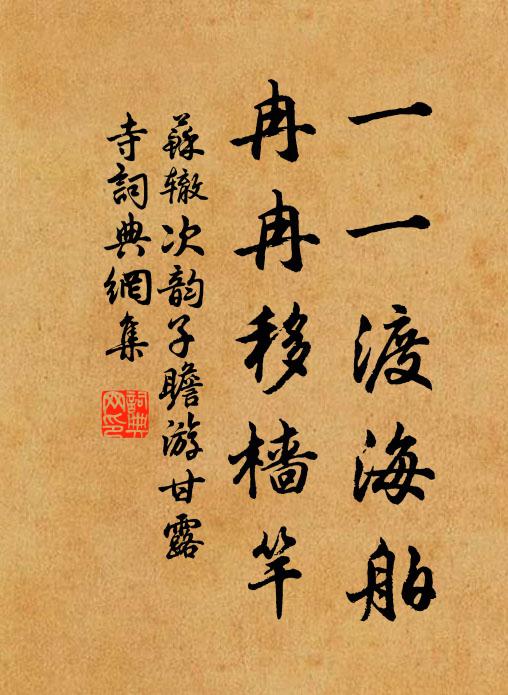 一一渡海舶
冉冉移檣竿
蘇辙次韵子瞻游甘露
寺詞典網集
詞典网印